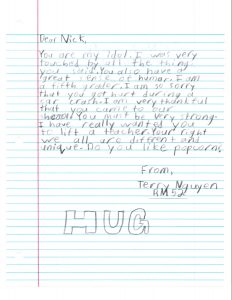 Dear Nick,
You are my idol. I was very
touched by all the thing
you said. You also have a
great sense of humor. I am
a fifth grader. I am so sorry
that you got hurt during a
car crash. I am very thankful
that you came to our
school. You must be very strong.
I have really wanted you
to lift a teacher. Your right
we all are diffrent and
unique. Do you like popcorn?
From,
Terry Nguyen
RM 52
HUG